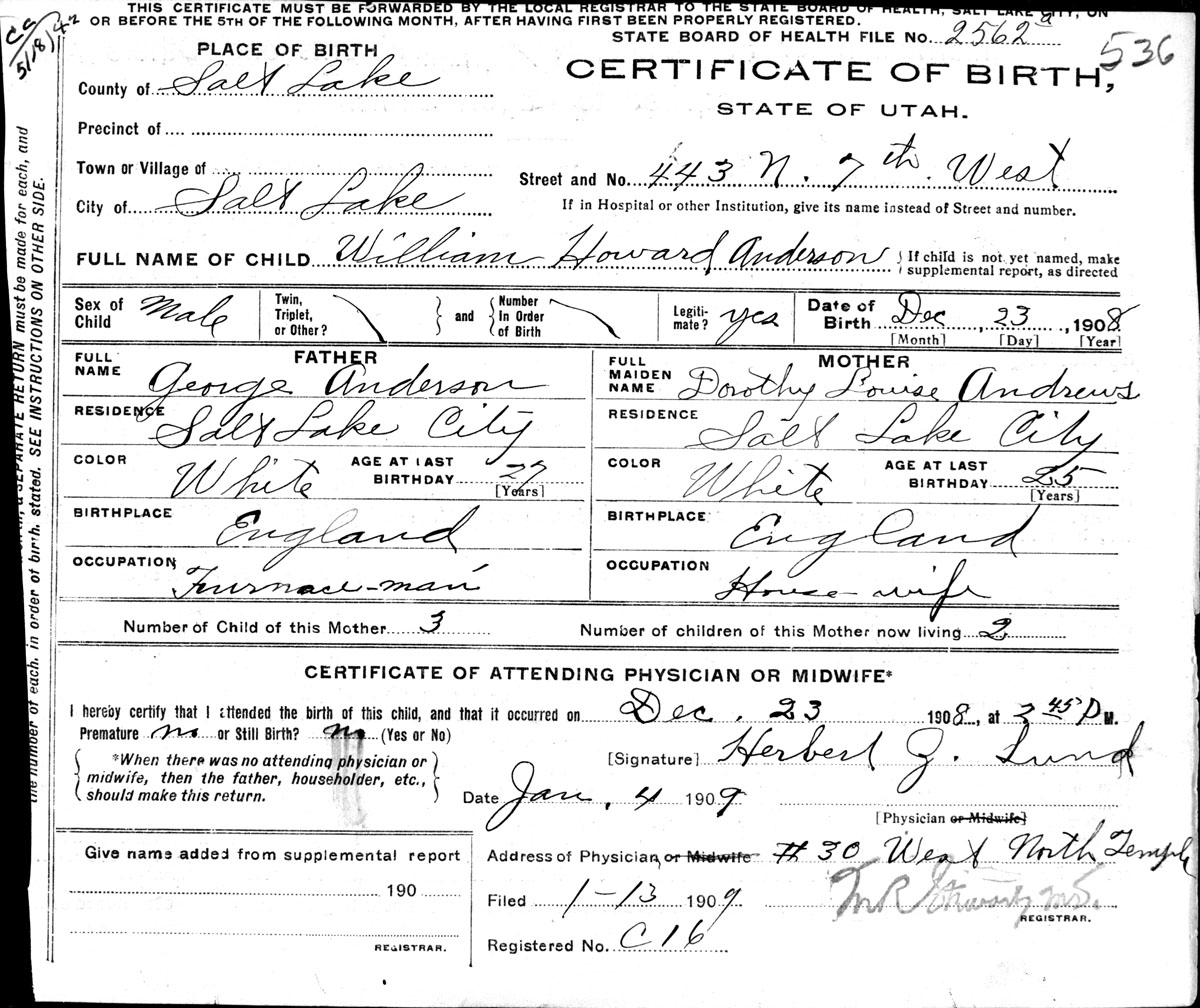 THIS CERTIFICATE MUST BE FORWARDED BY THE LOCAL REGISTRAR TO THE STATE BOARD OF HEALTH, SALT LAKE CITY, ON
OR BEFORE THE 5TH OF THE FOLLOWING MONTH, AFTER HAVING FIRST BEEN PROPERLY REGISTERED.
5/18/42
STATE BOARD OF HEALTH FILE No. 2562 a
536
PLACE OF BIRTH
CERTIFICATE OF BIRTH,
STATE OF UTAH.
County of Salt Lake
Precinct of
Town or Village of
Street and No. 443 N. 7th. West
City of Salt Lake
If in Hospital or other Institution, give its name instead of Street and number.
FULL NAME OF CHILD William Howard Anderson
If child is not yet named, make
supplemental report, as directed
Sex of Child Male
Twin, Triplet, or Other?
and
Number In Order of Birth
Legiti-mate? yes
Date of Birth Dec 23, 1908
[Month] [Day] [Year]
FATHER
FULL NAME George Anderson
RESIDENCE Salt Lake City
COLOR White
AGE AT LAST BIRTHDAY 27
[Years]
BIRTHPLACE England
OCCUPATION Furnace-man
MOTHER
FULL MAIDEN NAME Dorothy Louise Andrews
RESIDENCE Salt Lake City
COLOR White
AGE AT LAST BIRTHDAY 25
[Years]
BIRTHPLACE England
OCCUPATION House-wife
Number of Child of this Mother 3
Number of children of this Mother now living 2
CERTIFICATE OF ATTENDING PHYSICIAN OR MIDWIFE*
I hereby certify that I attended the birth of this child, and that it occurred on Dec. 23 1908, at 3 45 P M.
Premature no or Still Birth? no (Yes or No)
*When there was no attending physician or
midwife, then the father, householder, etc.,
should make this return.
[Signature] Herbert Z. Lund
Date Jan. 4 1909
[Physician or Midwife]
Address of Physician or Midwife # 30 West North Temple
Give name added from supplemental report
190
REGISTRAR.
Filed 1-13 1909
REGISTRAR.
Registered No. C16
A SEPARATE RETURN must be made for each, and
the number of each, in order of birth, stated. SEE INSTRUCTIONS ON OTHER SIDE.